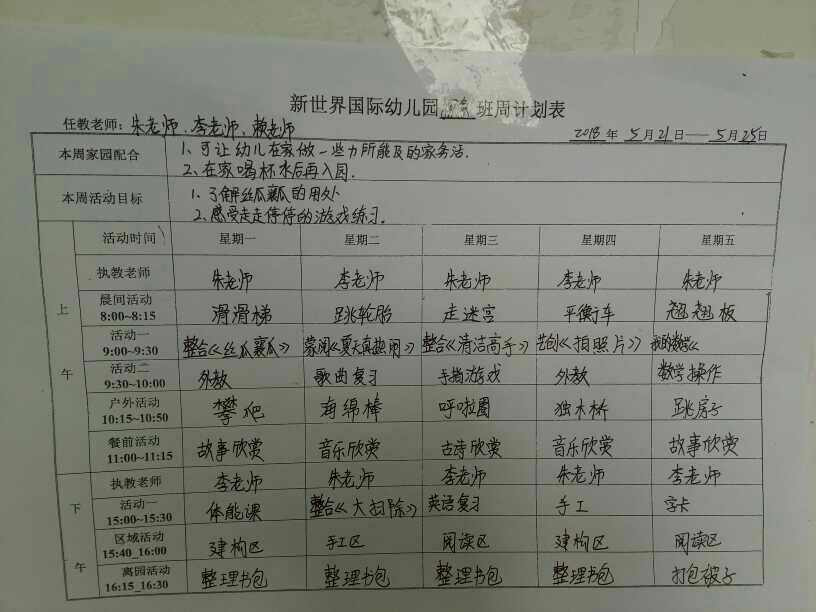 新世界国际幼儿园 班周计划表
任教老师：朱老师、李老师、赖老师 2018 年 5月21日——5月25日
本周家园配合 1、可让幼儿在家做一些力所能及的家务活.
2、在家喝杯水后再入园.
本周活动目标 1、了解丝瓜瓤瓜的用处
2、感受走走停停的游戏练习.
上午 活动时间 星期一 星期二 星期三 星期四 星期五
执教老师 朱老师 李老师 朱老师 李老师 朱老师
晨间活动 8:00~8:15 滑滑梯 跳轮胎 走迷宫 平衡车 翘翘板
活动一 9:00~9:30 整合《丝瓜瓤瓜》 蒙阅《夏天真热闹》 整合《清洁高手》 艺创《拍照片》 我的数学《
活动二 9:30~10:00 外教 歌曲复习 手指游戏 外教 数学操作
户外活动 10:15~10:50 攀爬 海绵棒 呼啦圈 独木桥 跳房子
餐前活动 11:00~11:15 故事欣赏 音乐欣赏 古诗欣赏 音乐欣赏 故事欣赏
下午 执教老师 李老师 朱老师 李老师 朱老师 李老师
活动一 15:00~15:30 体能课 整合《大扫除》 英语复习 手工 字卡
区域活动 15:40_16:00 建构区 手工区 阅读区 建构区 阅读区
离园活动 16:15_16:30 整理书包 整理书包 整理书包 整理书包 打包被子